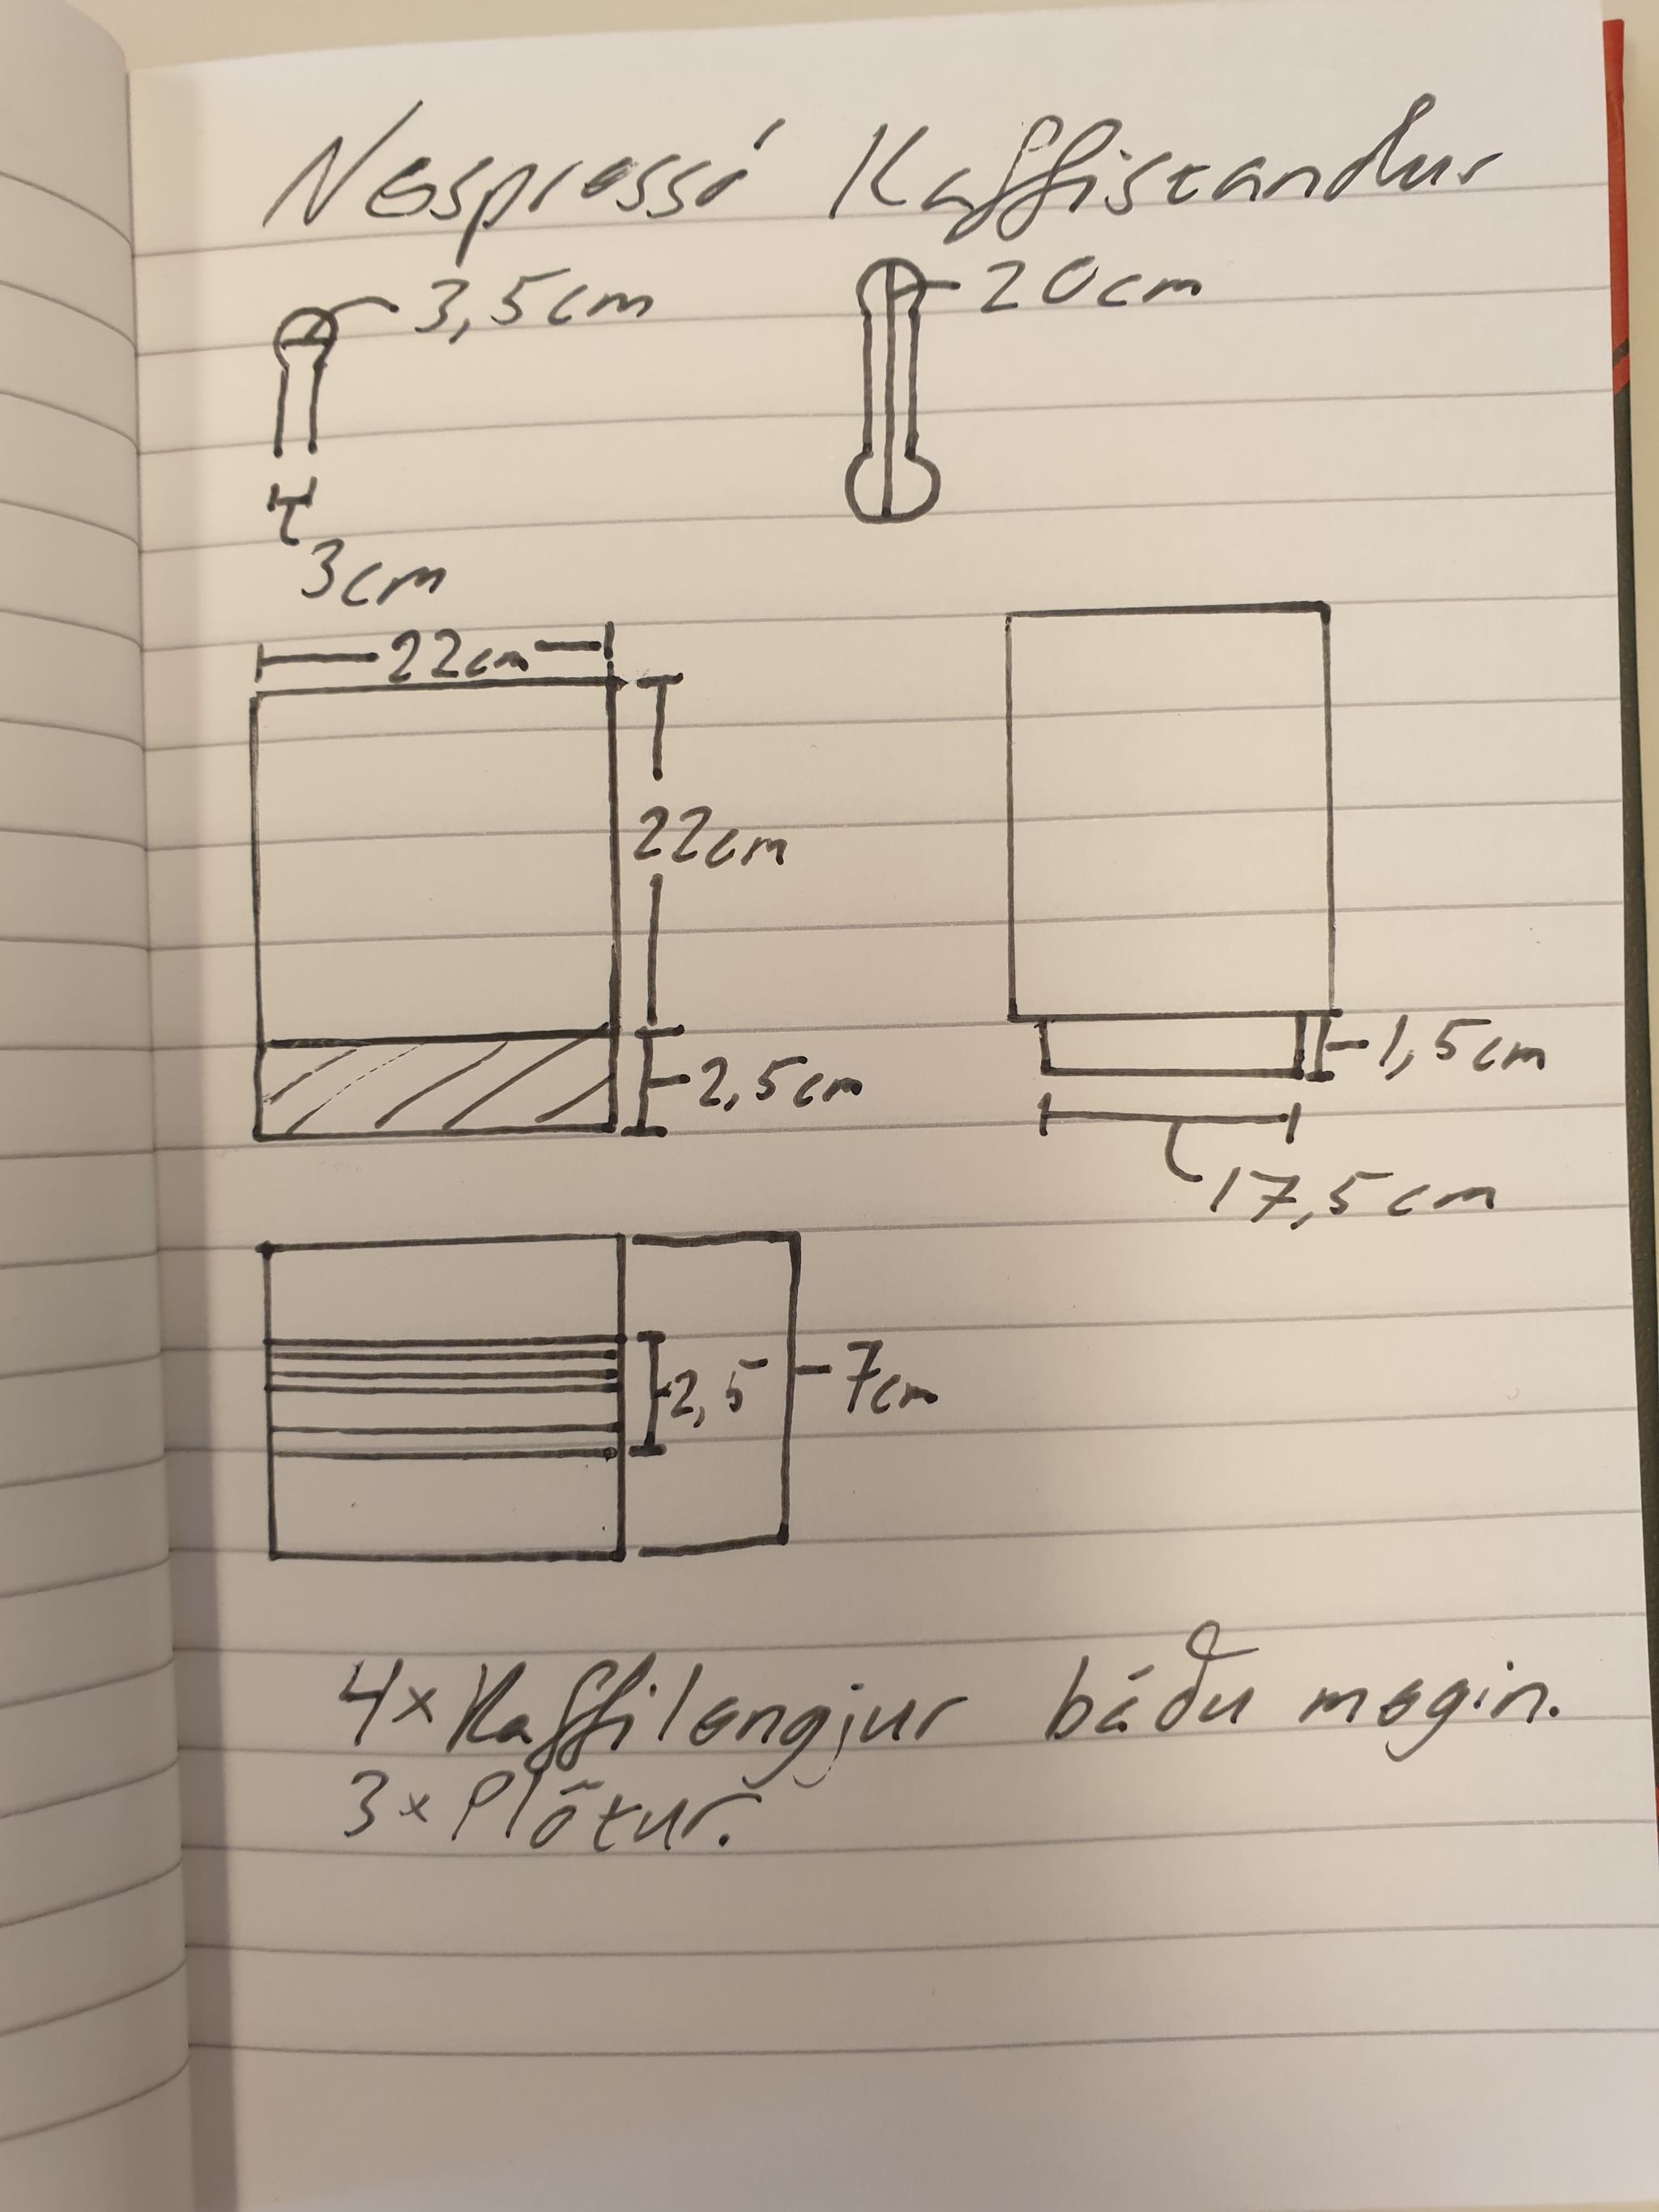 Nespressó Kaffistandur
3,5cm
20cm
3cm
22cm
22cm
2,5cm
1,5cm
17,5cm
2,5
7cm
4x Kaffilengjur báðu megin.
3x Plötur.